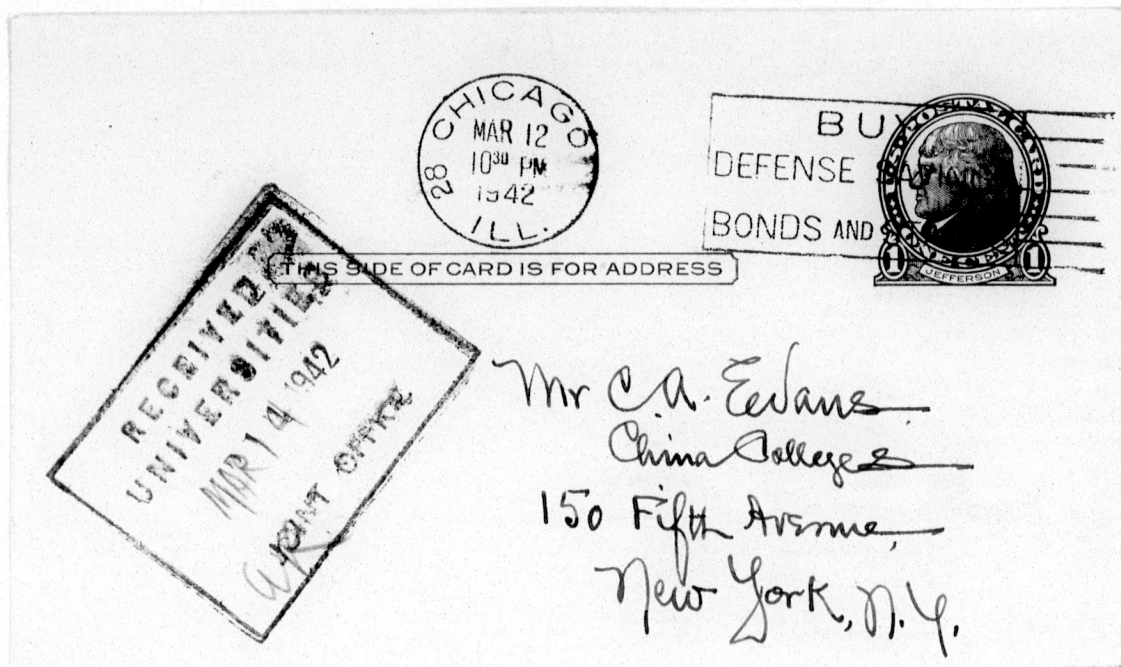 28 CHICAGO
MAR 12
10 30 PM
1942
ILL.
BUY
DEFENSE SAVINGS
BONDS AND
U.S. POSTAL CARD
ONE CENT
1 JEFFERSON 1
THIS SIDE OF CARD IS FOR ADDRESS
RECEIVED
UNIVERSITIES
MAR 14 1942
JOINT OFFICE
Mr C.A. Evans
China Colleges
150 Fifth Avenue,
New York, N.Y.